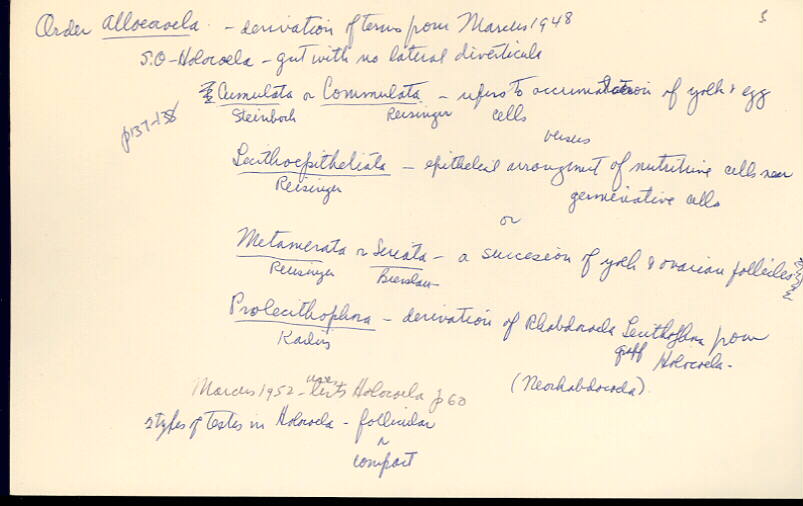 Order Alloeocoela - derivation of terms from Marcus 1948
S.O - Holocoela - gut with no lateral diverticula
Cumulata or Commulata - refers to accumulation of yolk & egg
Steinbock Reisinger cells
p137-138
versus
Lecithoepitheliata - epithelial arrangment of nutritive cells near
Reisinger germinative cells
or
Metamerata or Seriata - a succession of yolk & ovarian follicles
Reisinger Bresslau
Prolecithophora - derivation of Rhabdocoela Lecithophora from
Karling Holocoela -
(Neorhabdocoela).
Marcus 1952 - uses Holocoela p60
2 types of testes in Holocoela - follicular
or
compact